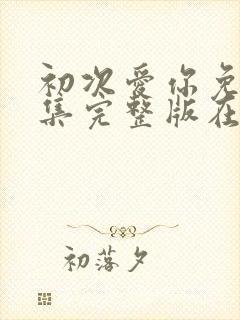 初次爱你免
集完整版在
初落夕